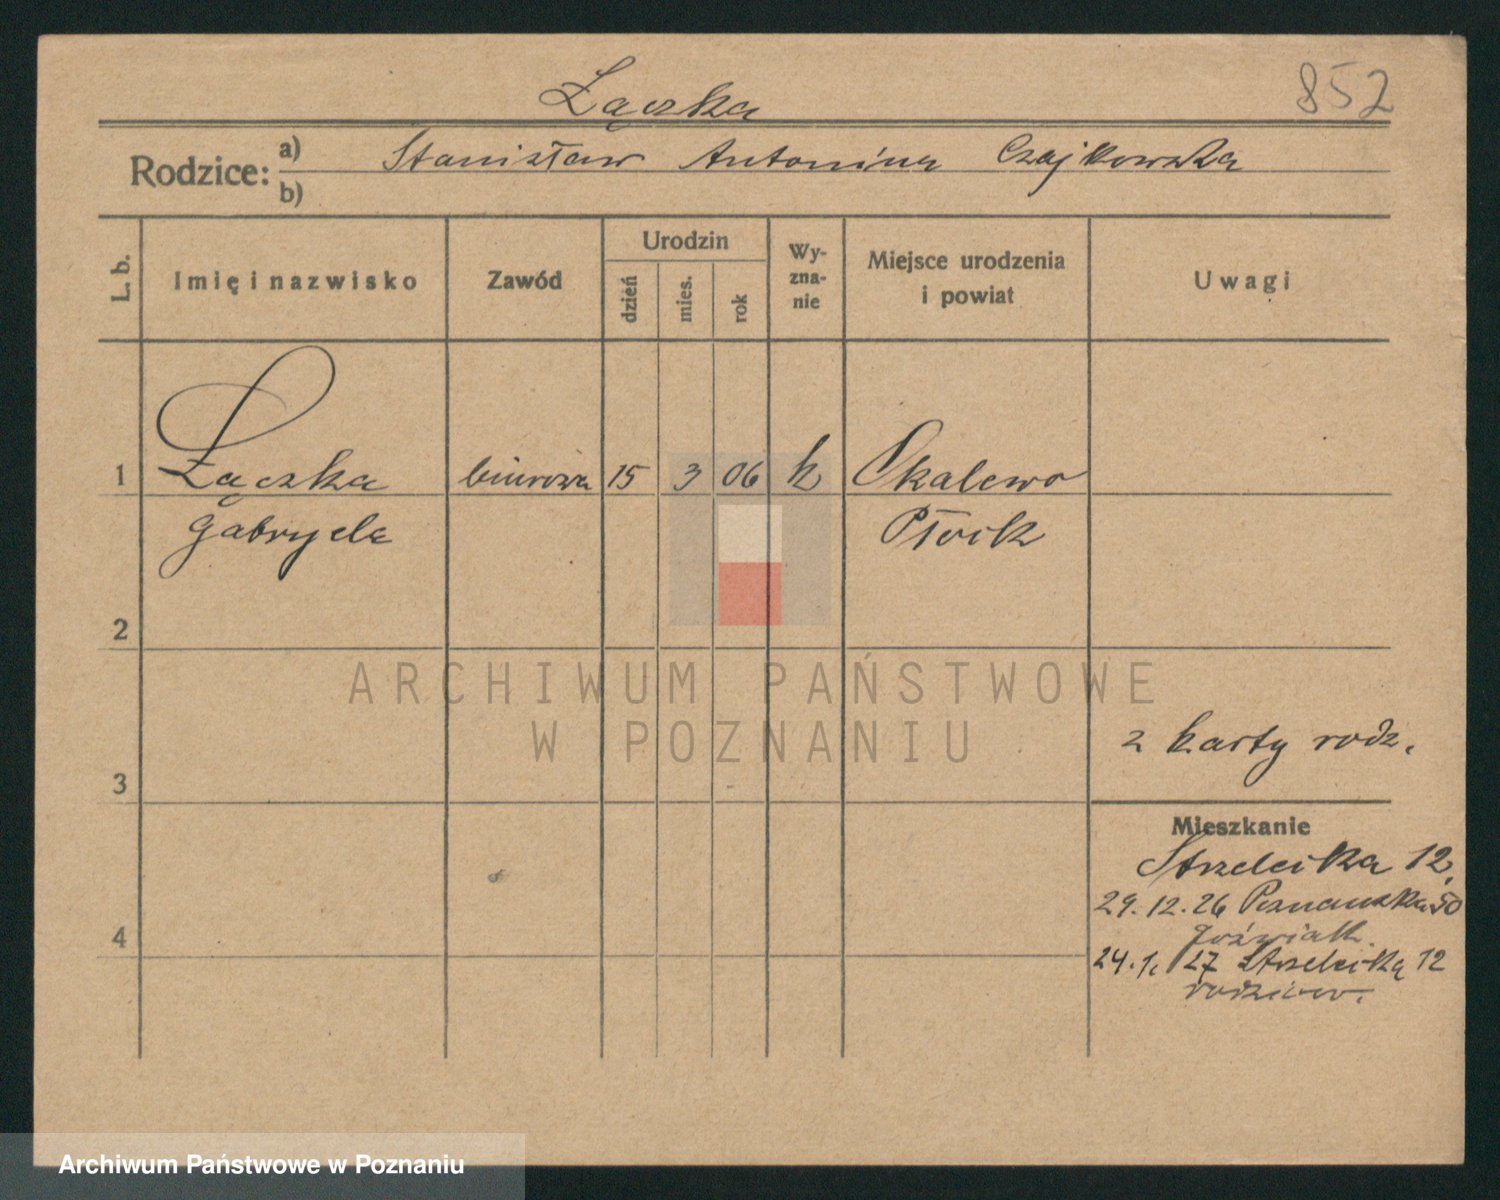 Łączka
852
Rodzice: a) Stanisław Antonina Czajkowska
b)
L. b. Imię i nazwisko Zawód Urodzin dzień mies. rok Wyznanie Miejsce urodzenia i powiat Uwagi
1 Łączka biurowa 15 3 06 k Skalewo
Gabryela Płock
2
ARCHIWUM PAŃSTWOWE
W POZNANIU
z karty rodz.
3
Mieszkanie
Strzelecka 12,
29.12.26 Poznańska 50
Joźwiak.
4
24.1. 27 Strzelecka 12
rodziców.
Archiwum Państwowe w Poznaniu